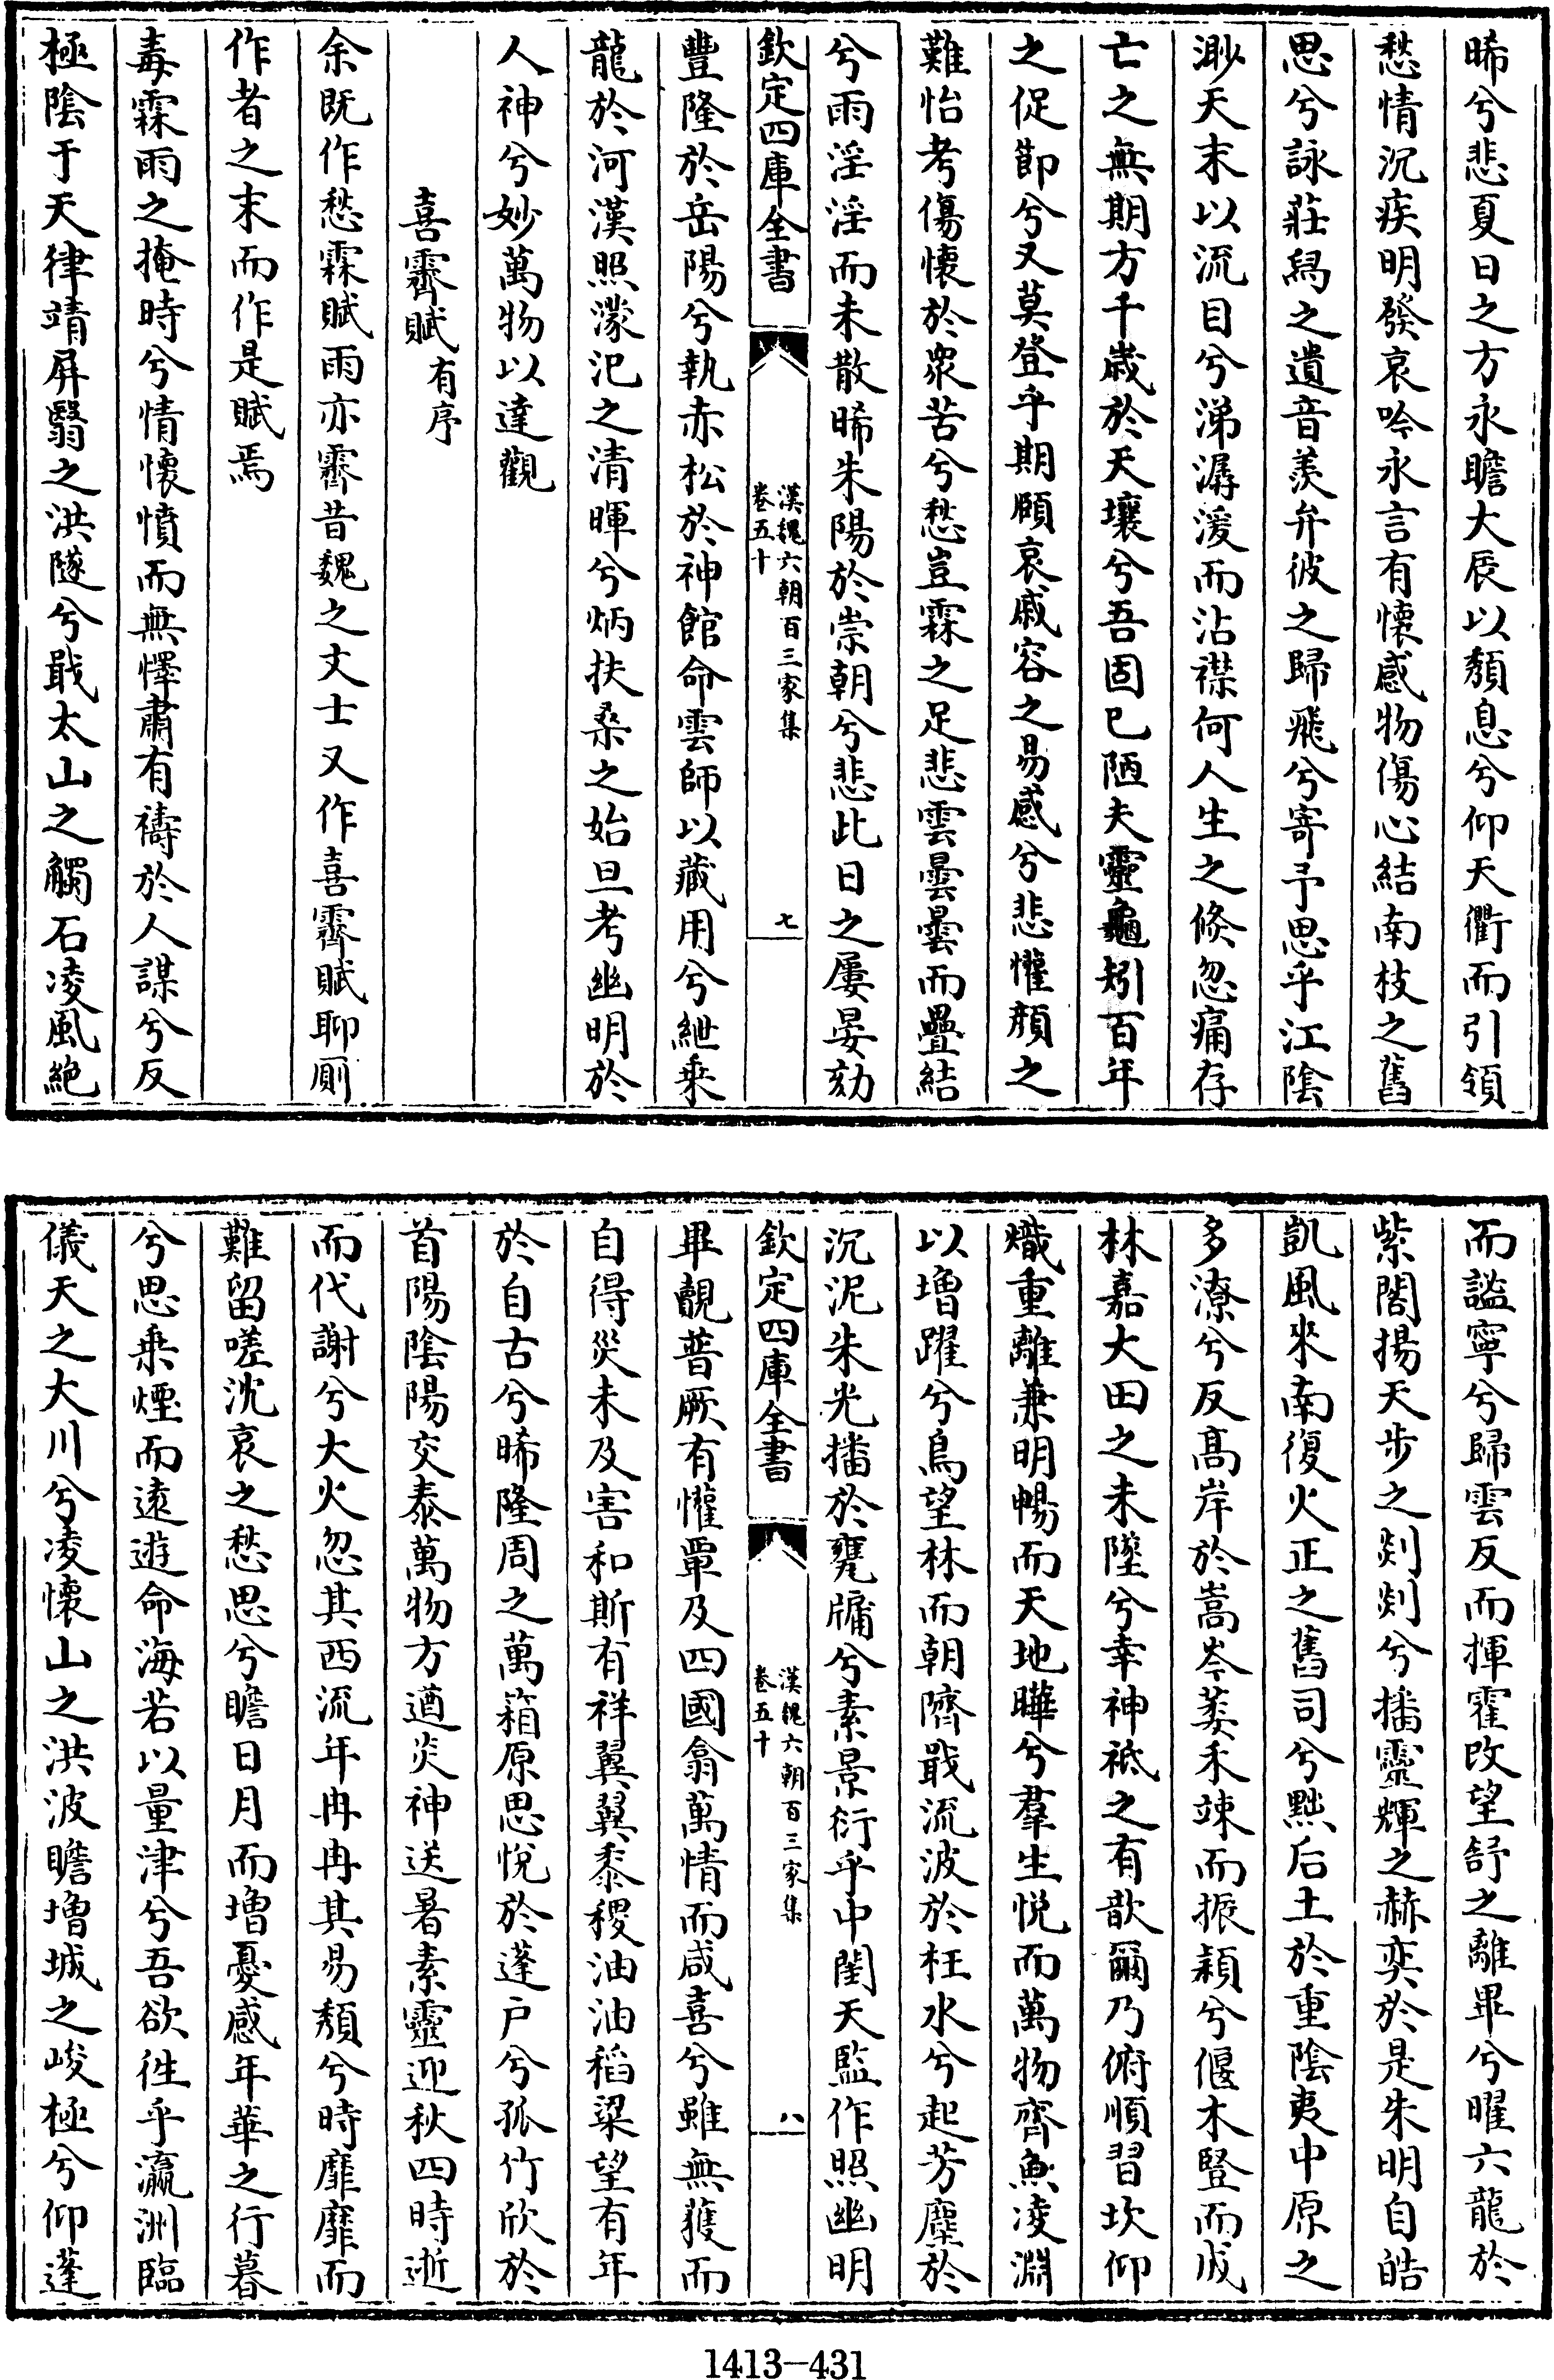 晞兮悲夏日之方永瞻大辰以頽息兮仰天衢而引領
愁情沉疾明發哀吟永言有懷感物傷心結南枝之舊
思兮詠莊舄之遺音羨弁彼之歸飛兮寄予思乎江隂
渺天末以流目兮涕潺湲而沾襟何人生之倏忽痛存
亡之無期方千歲於天壤兮吾固已陋夫靈龜矧百年
之促節兮又莫登乎期頤哀戚容之易感兮悲懽顔之
難怡考傷懷於衆苦兮愁豈霖之足悲雲曇曇而疊結
兮雨淫淫而未散晞朱陽於崇朝兮悲此日之屢晏劾
欽定四庫全書
漢魏六朝百三家集
卷五十
七
豐隆於岳陽兮執赤松於神館命雲師以藏用兮紲乗
龍於河漢照濛汜之清暉兮炳扶桑之始旦考幽明於
人神兮妙萬物以達觀
喜霽賦有序
余既作愁霖賦雨亦霽昔魏之文士又作喜霽賦聊厠
作者之末而作是賦焉
毒霖雨之掩時兮情懷憤而無懌肅有禱於人謀兮反
極隂于天律靖屏翳之洪隧兮戢太山之觸石凌風絶
而謐寧兮歸雲反而揮霍改望舒之離畢兮曜六龍於
紫閣揚天步之剡剡兮播靈輝之赫奕於是朱明自皓
凱風來南復火正之舊司兮黜后土於重隂夷中原之
多潦兮反髙岸於嵩岑萎禾竦而振穎兮偃木豎而成
林嘉大田之未墜兮幸神祗之有歆爾乃俯順習坎仰
熾重離兼明暢而天地曄兮羣生悅而萬物齊魚凌淵
以増躍兮鳥望林而朝隮戢流波於枉水兮起芳塵於
沉泥朱光播於甕牖兮素景衍乎中閨天監作照幽明
欽定四庫全書
漢魏六朝百三家集
卷五十
八
畢覩普厥有懽覃及四國翕萬情而咸喜兮雖無獲而
自得災未及害和斯有祥翼翼黍稷油油稻粱望有年
於自古兮晞隆周之萬箱原思悅於蓬户兮孤竹欣於
首陽隂陽交泰萬物方遒炎神送暑素靈迎秋四時逝
而代謝兮大火忽其西流年冉冉其易頽兮時靡靡而
難留嗟沈哀之愁思兮瞻日月而増憂感年華之行暮
兮思乗煙而遠遊命海若以量津兮吾欲徃乎瀛洲臨
儀天之大川兮凌懷山之洪波瞻増城之峻極兮仰蓬
1413-431